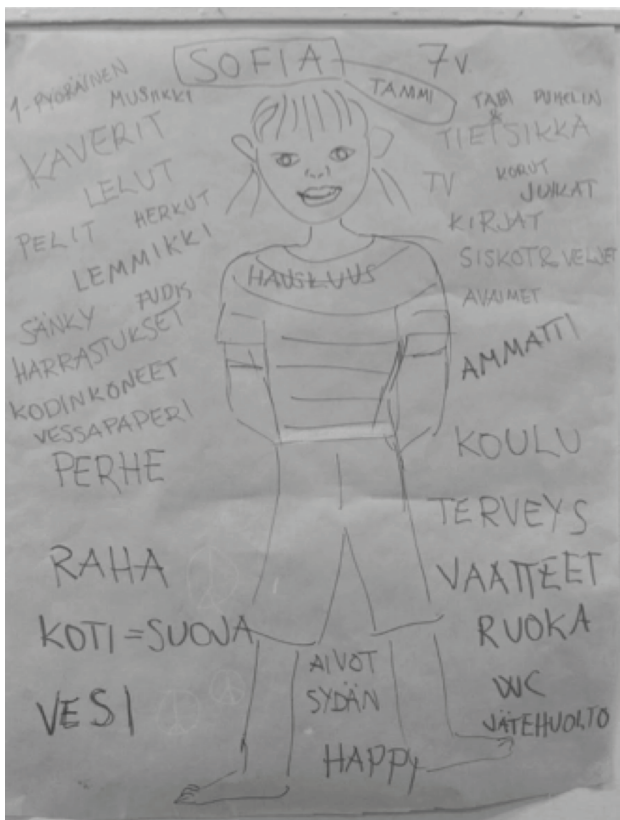 SOFIA 7v.
TAMMI
1-PYÖRÄINEN
MUSIIKKI
KAVERIT
LELUT
PELIT HERKUT
LEMMIKKI
SÄNKY FUDIS
HARRASTUKSET
KODINKONEET
VESSAPAPERI
PERHE
RAHA
KOTI = SUOJA
VESI
HAUSKUUS
AIVOT
SYDÄN
HAPPY
PUHELIN
&
TIETSIKKA
TV KORUT
JUHLAT
KIRJAT
SISKOT & VELJET
AVAIMET
AMMATTI
KOULU
TERVEYS
VAATTEET
RUOKA
WC
JÄTEHUOLTO